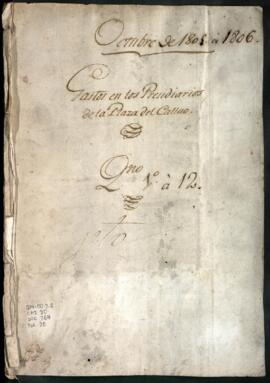 Octubre de 1805 a 1806.
Gastos en los Presidiarios
de la Plaza del Callao.
Qno
1º a 12.